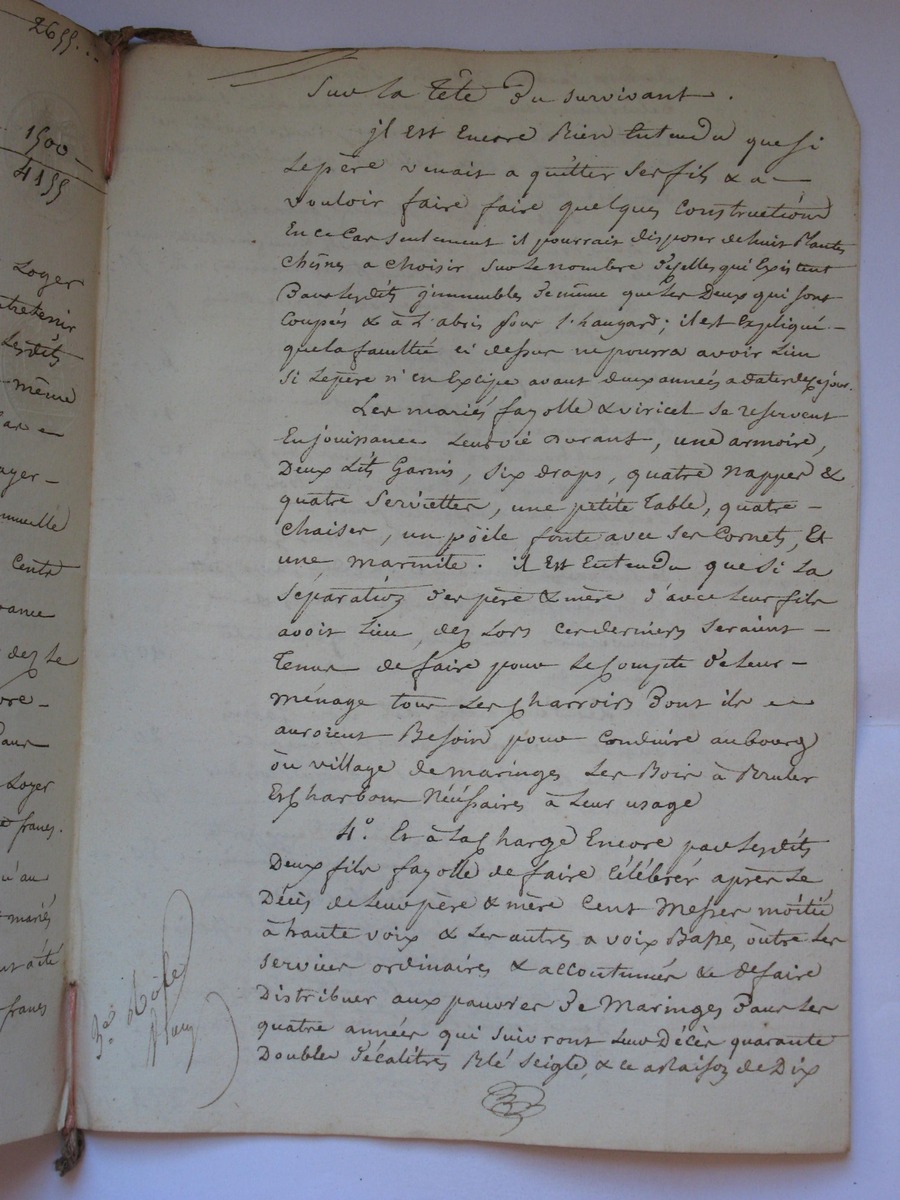 2655...
1500
4155
Loger
tretenir
Lesdits
même
ayer
Cent
rance
dez Le
Loger
francs.
mariés
francs
Sur la Tête du survivant.
jl est Encore Bien Entendu que si
Le père venait a quitter Ses fils & a
vouloir faire faire quelques Constructions
En ce Cas seulement il pourrait disposer de huit Plantes
Chênes a choisir Sur le nombre d'iselles qui Existent
Dans Lesdits jmmeubles de même que Les Deux qui sont
Coupés & à L'abris sous l'haugard; il est Expliqué
que la faculté ci dessus ne pourra avoir Lieu
Si Le père n'en Excipe avant deux années a dater de ce jour.
Les mariés fayolle & viricel se reservent
En jouissance Leur vie durant, une armoire,
Deux Lits Garnis, six draps, quatre nappes &
quatre serviettes, une petite Table, quatre
chaises, un pöële fonte avec Ses Cornets, Et
une marmite. il Est Entendu que si La
séparation des père & mère d'avec Leur fils
avoit Lieu, dez Lors Ces derniers seraient
Tenus de faire pour Le Compte de Leur
ménage tous Les Charrois Dont ils
auroient Besoin pour Conduire au bourg
ou village de maringes Les Bois à Bruler
Et Charbons Nécéssaires à Leur usage
4.° Et à La Charge Encore par Lesdits
Deux fils fayolle de faire Célébrér après Le
Décès de Leurs père & mère Cent Messes moitié
à haute voix & Les autres a voix Basse, outre Les
services ordinaires & accoutumés & de faire
Distribuer aux pauvres de Maringes Dans Les
quatre années qui suivront Leur Décès quarante
Doubles décalitres Blé Seigle, & ce a Raison de Dix
3.e Rôle